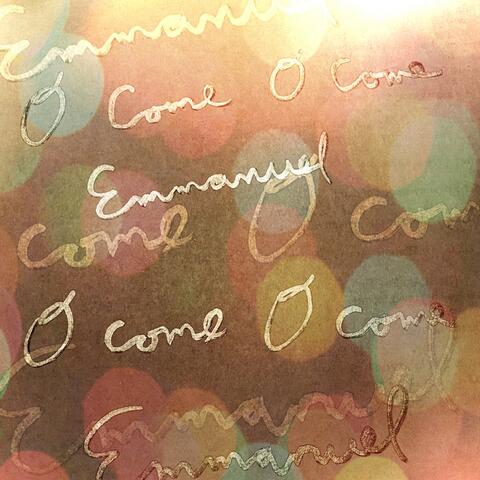 Emmanuel
O Come O Come
Emmanuel
come O Com
O come O come
Emmanuel
Emmanuel